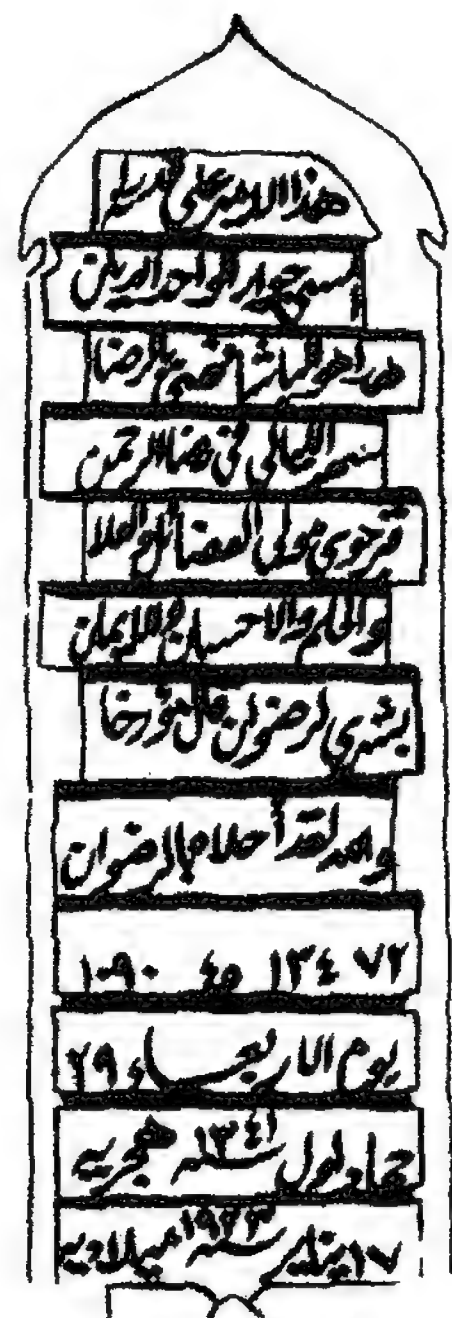 هذا الامير على
امسى جوار الواحد الديان
هذا هو الباشا قضى بالرضا
سهر الليالي في رضا الرحمن
حوى مولى الفضائل والعلا
والحلم والاحسان والايمان
بشرى لرضوان قال مؤرخا
والله لقد أحلاه بالرضوان
٧٢ ١٣٤ ٤٥ ١٠٩٠
يوم الاربعاء ٢٩
جماد اول سنة ١٣٤١ هجريه
١٧ يناير سنة ١٩٢٣ ميلاديه